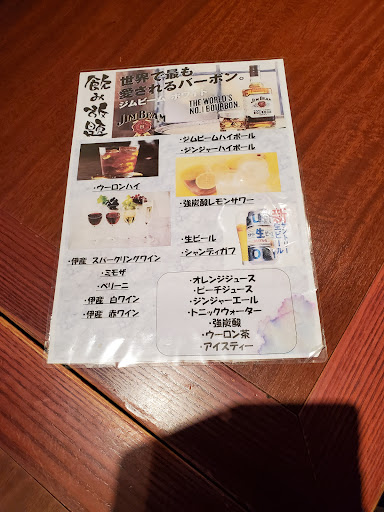 飲み放題
世界で最も
愛されるバーボン。
ジムビーム
JIM BEAM
THE WORLD'S
NO.1 BOURBON.
JIM BEAM
・ジムビームハイボール
・ジンジャーハイボール
・ウーロンハイ
・強炭酸レモンサワー
・生ビール
・シャンディガフ
サントリー
生ビール
生
・伊産 スパークリングワイン
・ミモザ
・ベリーニ
・伊産 白ワイン
・伊産 赤ワイン
・オレンジジュース
・ピーチジュース
・ジンジャーエール
・トニックウォーター
・強炭酸
・ウーロン茶
・アイスティー